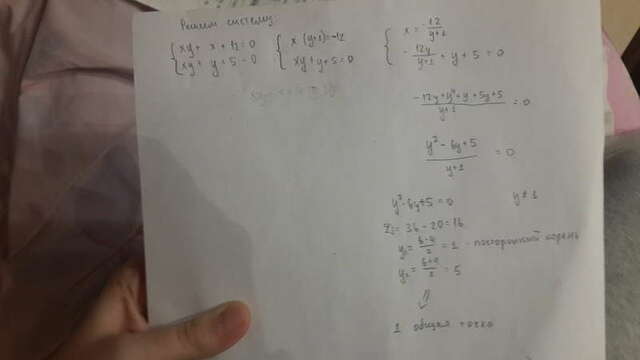 Решаем систему:
{ xy + x + 12 = 0
xy + y + 5 = 0
{ x (y+1) = -12
xy + y + 5 = 0
{ x = -12/(y+1)
-12y/(y+1) + y + 5 = 0
(-12y + y² + y + 5y + 5)/(y+1) = 0
(y² - 6y + 5)/(y+1) = 0
y² - 6y + 5 = 0 y ≠ 1
D = 36 - 20 = 16
y₁ = (6-4)/2 = 1 - посторонний корень
y₂ = (6+4)/2 = 5
⇓
1 общая точка